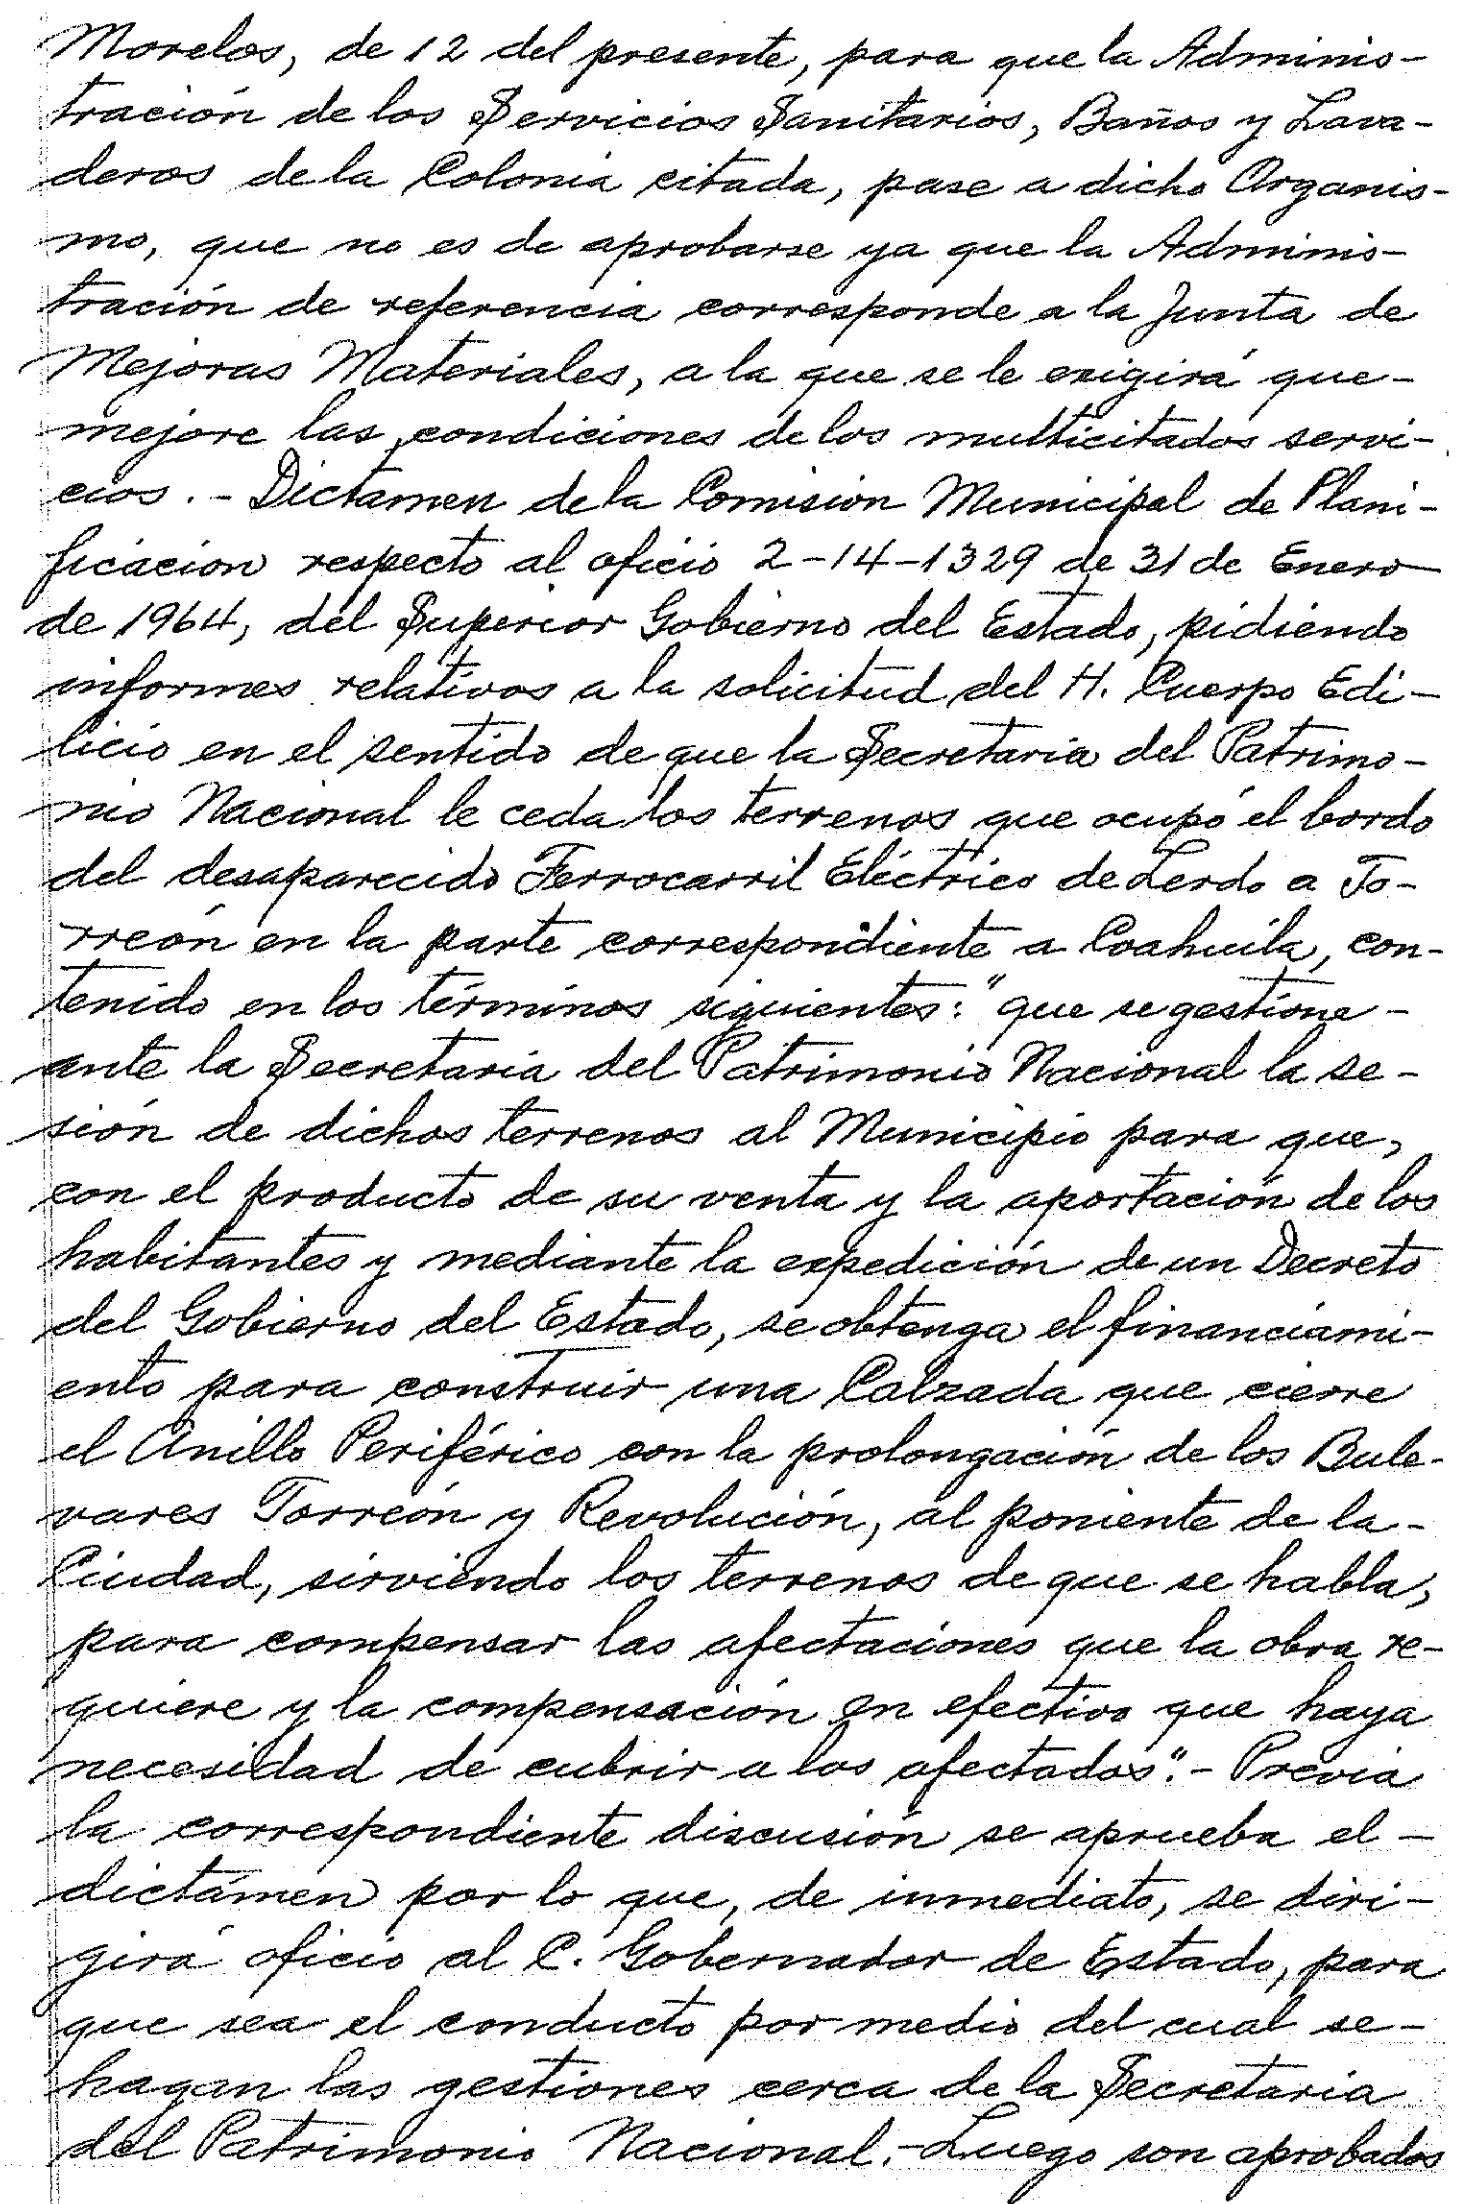 Morelos, de 12 del presente, para que la Adminis-
tración de los Servicios Sanitarios, Baños y Lava-
deros de la Colonia citada, pase a dicho Organis-
mo, que no es de aprobarse ya que la Adminis-
tración de referencia corresponde a la Junta de
Mejoras Materiales, a la que se le exigirá que-
mejore las condiciones de los multicitados servi-
cios.- Dictamen de la Comisión Municipal de Plani-
ficación respecto al oficio 2-14-1329 de 31 de Enero
de 1964, del Superior Gobierno del Estado, pidiendo
informes relativos a la solicitud del H. Cuerpo Edi-
licio en el sentido de que la Secretaria del Patrimo-
nio Nacional le ceda los terrenos que ocupó el bordo
del desaparecido Ferrocarril Eléctrico de Lerdo a To-
rreón en la parte correspondiente a Coahuila, con-
tenido en los términos siguientes: "que se gestione-
ante la Secretaria del Patrimonio Nacional la se-
sión de dichos terrenos al Municipio para que,
con el producto de su venta y la aportación de los
habitantes y mediante la expedición de un Decreto
del Gobierno del Estado, se obtenga el financiami-
ento para construir una Calzada que cierre
el Anillo Periférico con la prolongación de los Bule-
vares Torreón y Revolución, al poniente de la-
Ciudad, sirviendo los terrenos de que se habla,
para compensar las afectaciones que la obra re-
quiere y la compensación en efectivo que haya
necesidad de cubrir a los afectados".- Previa
la correspondiente discusión se aprueba el-
dictámen por lo que, de inmediato, se diri-
girá oficio al C. Gobernador de Estado, para
que sea el conducto por medio del cual se-
hagan las gestiones cerca de la Secretaria
del Patrimonio Nacional.- Luego son aprobados